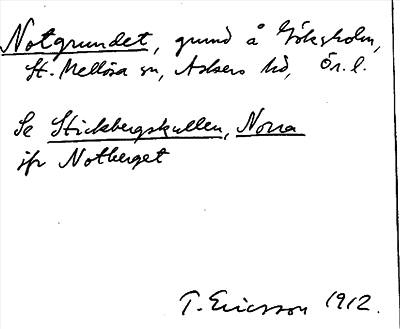 Notgrundet, grund å Göksholm,
St. Mellösa sn, Askers hd, Ör. l.
Se Stickbergskullen, Norra
jfr Notberget
T. Ericsson 1912.